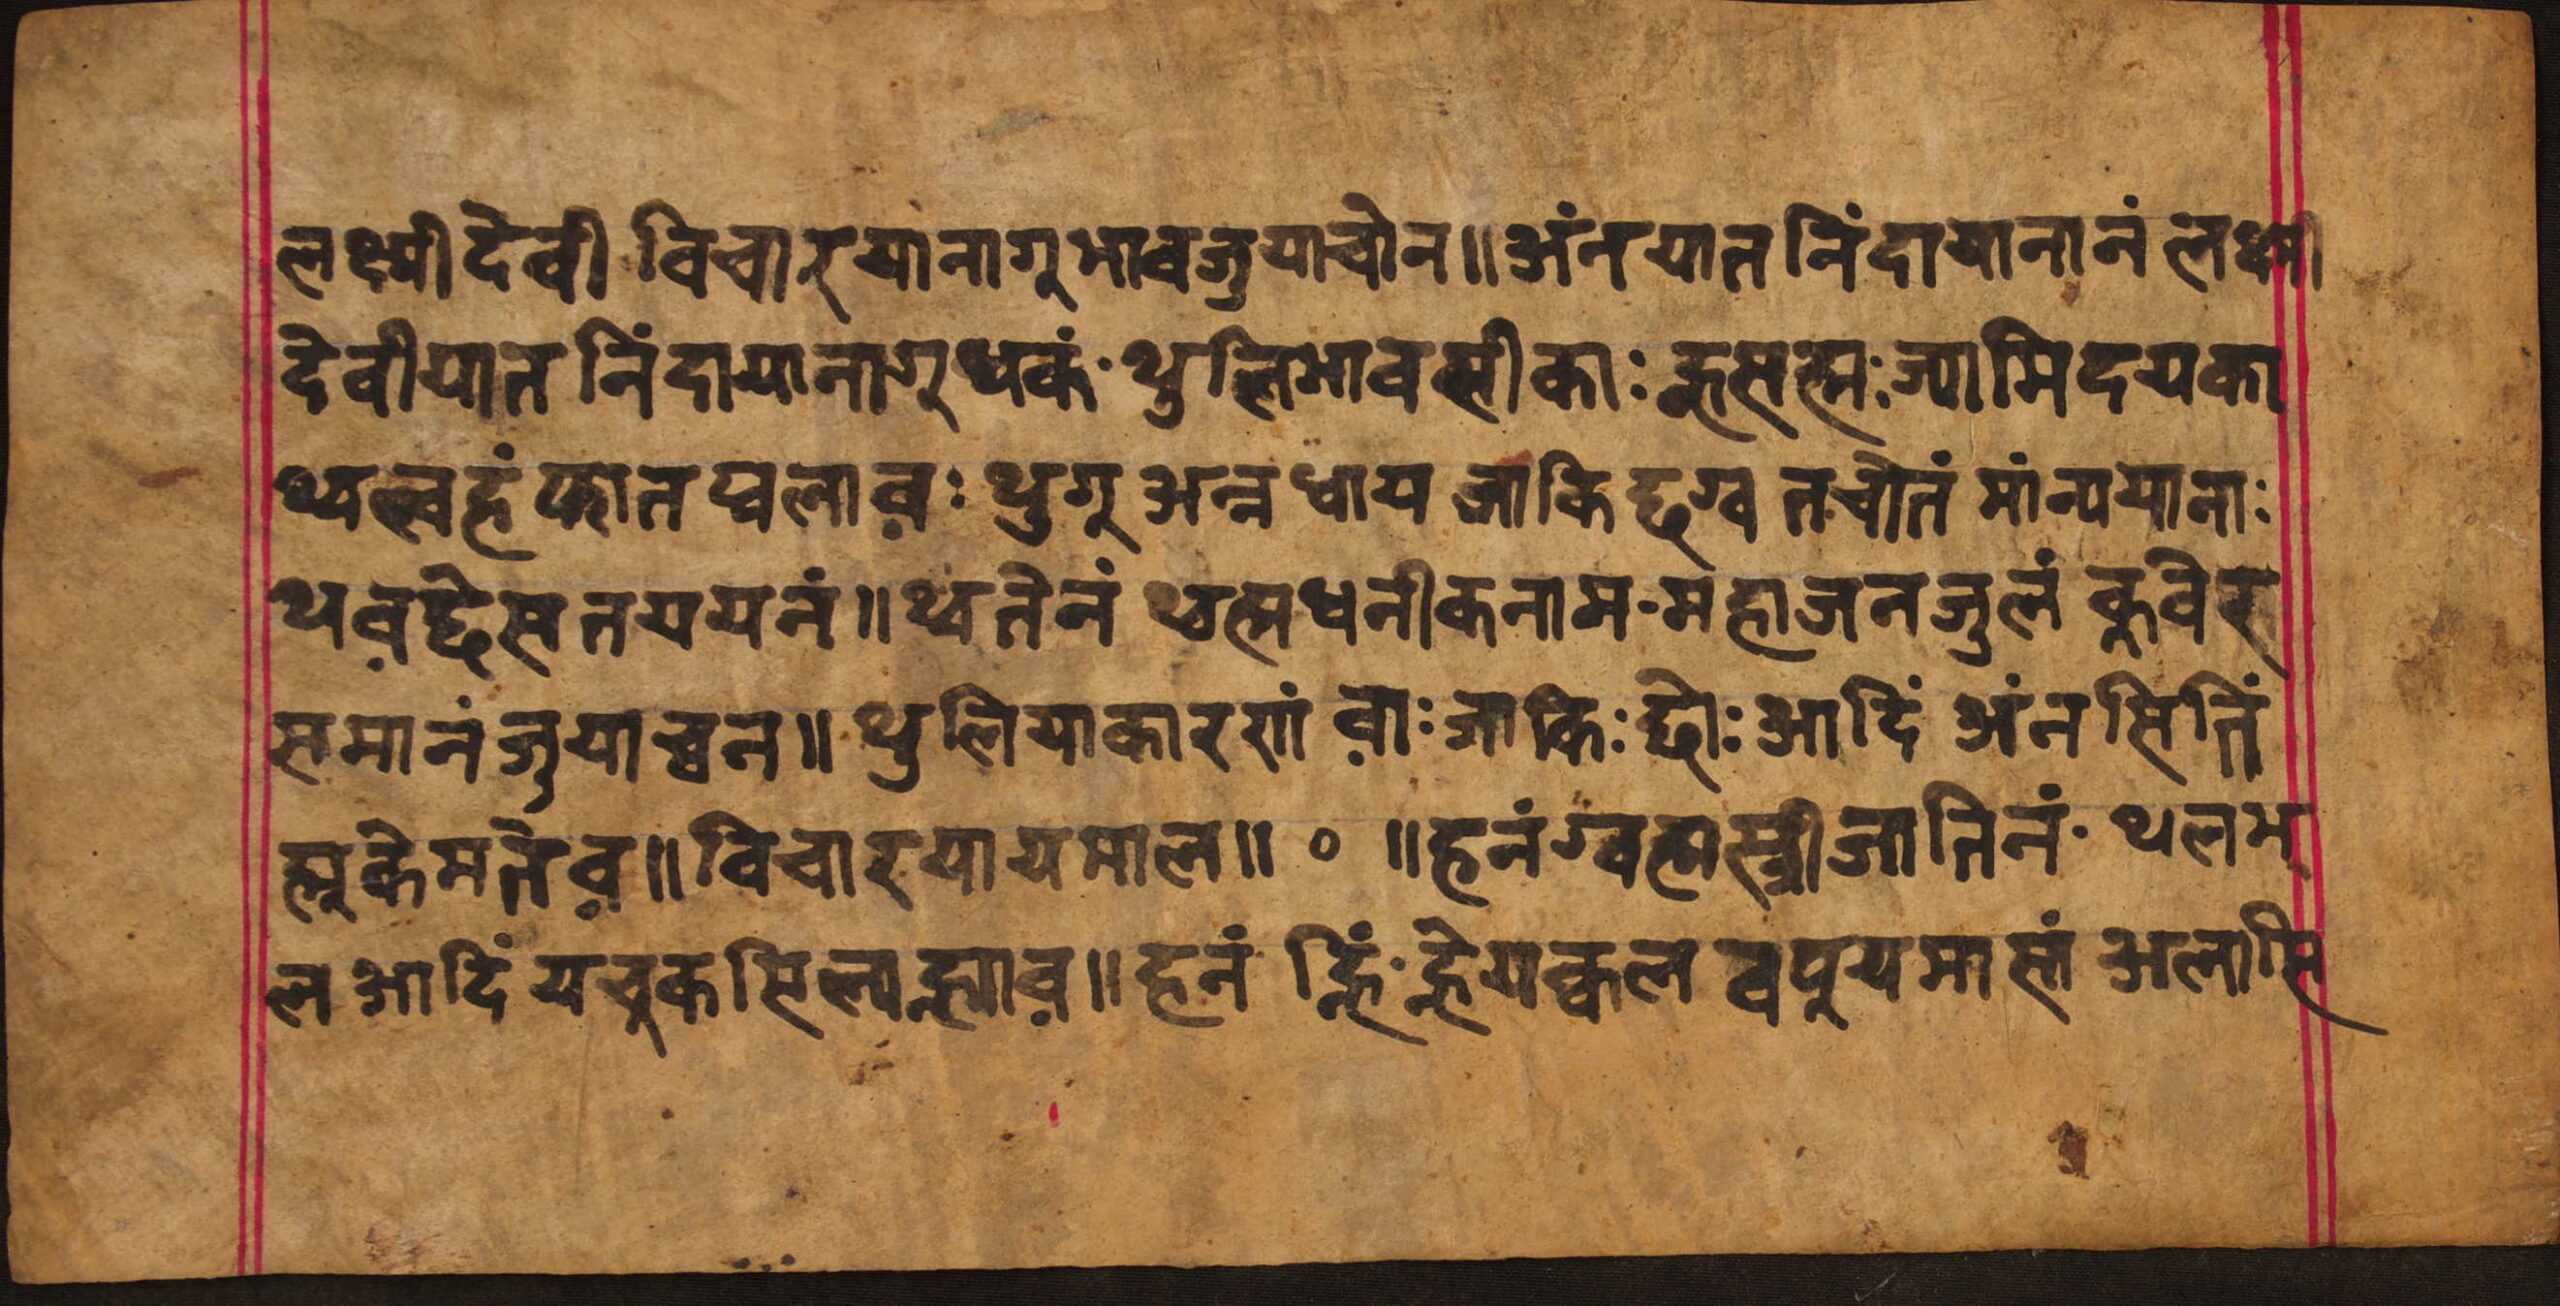 लक्ष्मीदेवी विचारयानागूभावजुयाचोन॥अंनयातनिंदायानानं लक्ष्मी
देवीयातनिंदायानागूधकं·थुलिभावसीकाः रूसह्मःज्यामिदयका
थ्यल्वहंफातप्वलाव़ः थुगूअन्नधाय जाकिछग्व तचोतं मांन्ययानाः
थव़छेसतययनं॥थ्वतेनं थ्वह्मधनीकनाम·महाजनजुलं कूवेर
समानंजुयाच्वन॥ थुलियाकारणं व़ाः जाकिः छोः आदिं अंनसितिं
ह्मूकेमतेव़॥विचारयायमाल॥ ० ॥हनंग्वह्मस्त्रीजातिनं· थलभ
लआदिं यचुकसिल्यह्ल्याव़॥हनं ह्निं·ह्नेयक्वलवपूयमासां अलासि